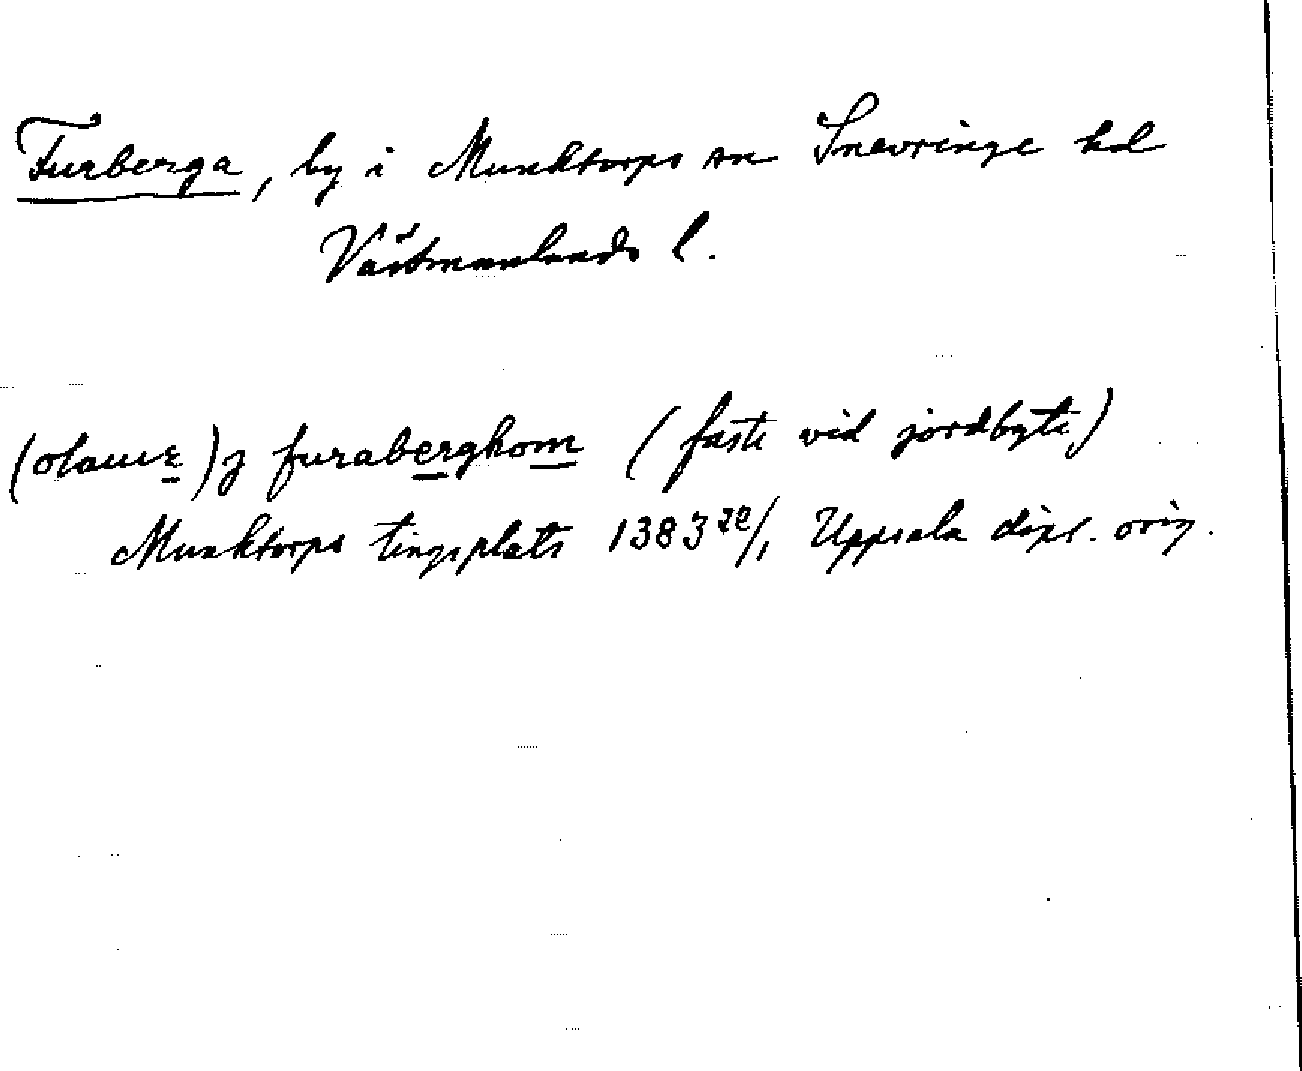 Furberga, by i Munktorps sn Snevringe hd
Västmanlands l.
(olauus) j furaberghom (faste vid jordbyte)
Munktorps tingsplats 1383 20/1 Uppsala dipl. orig.